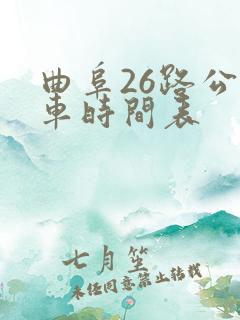 曲阜26路公
車時間表
七月笙
未经同意禁止转载